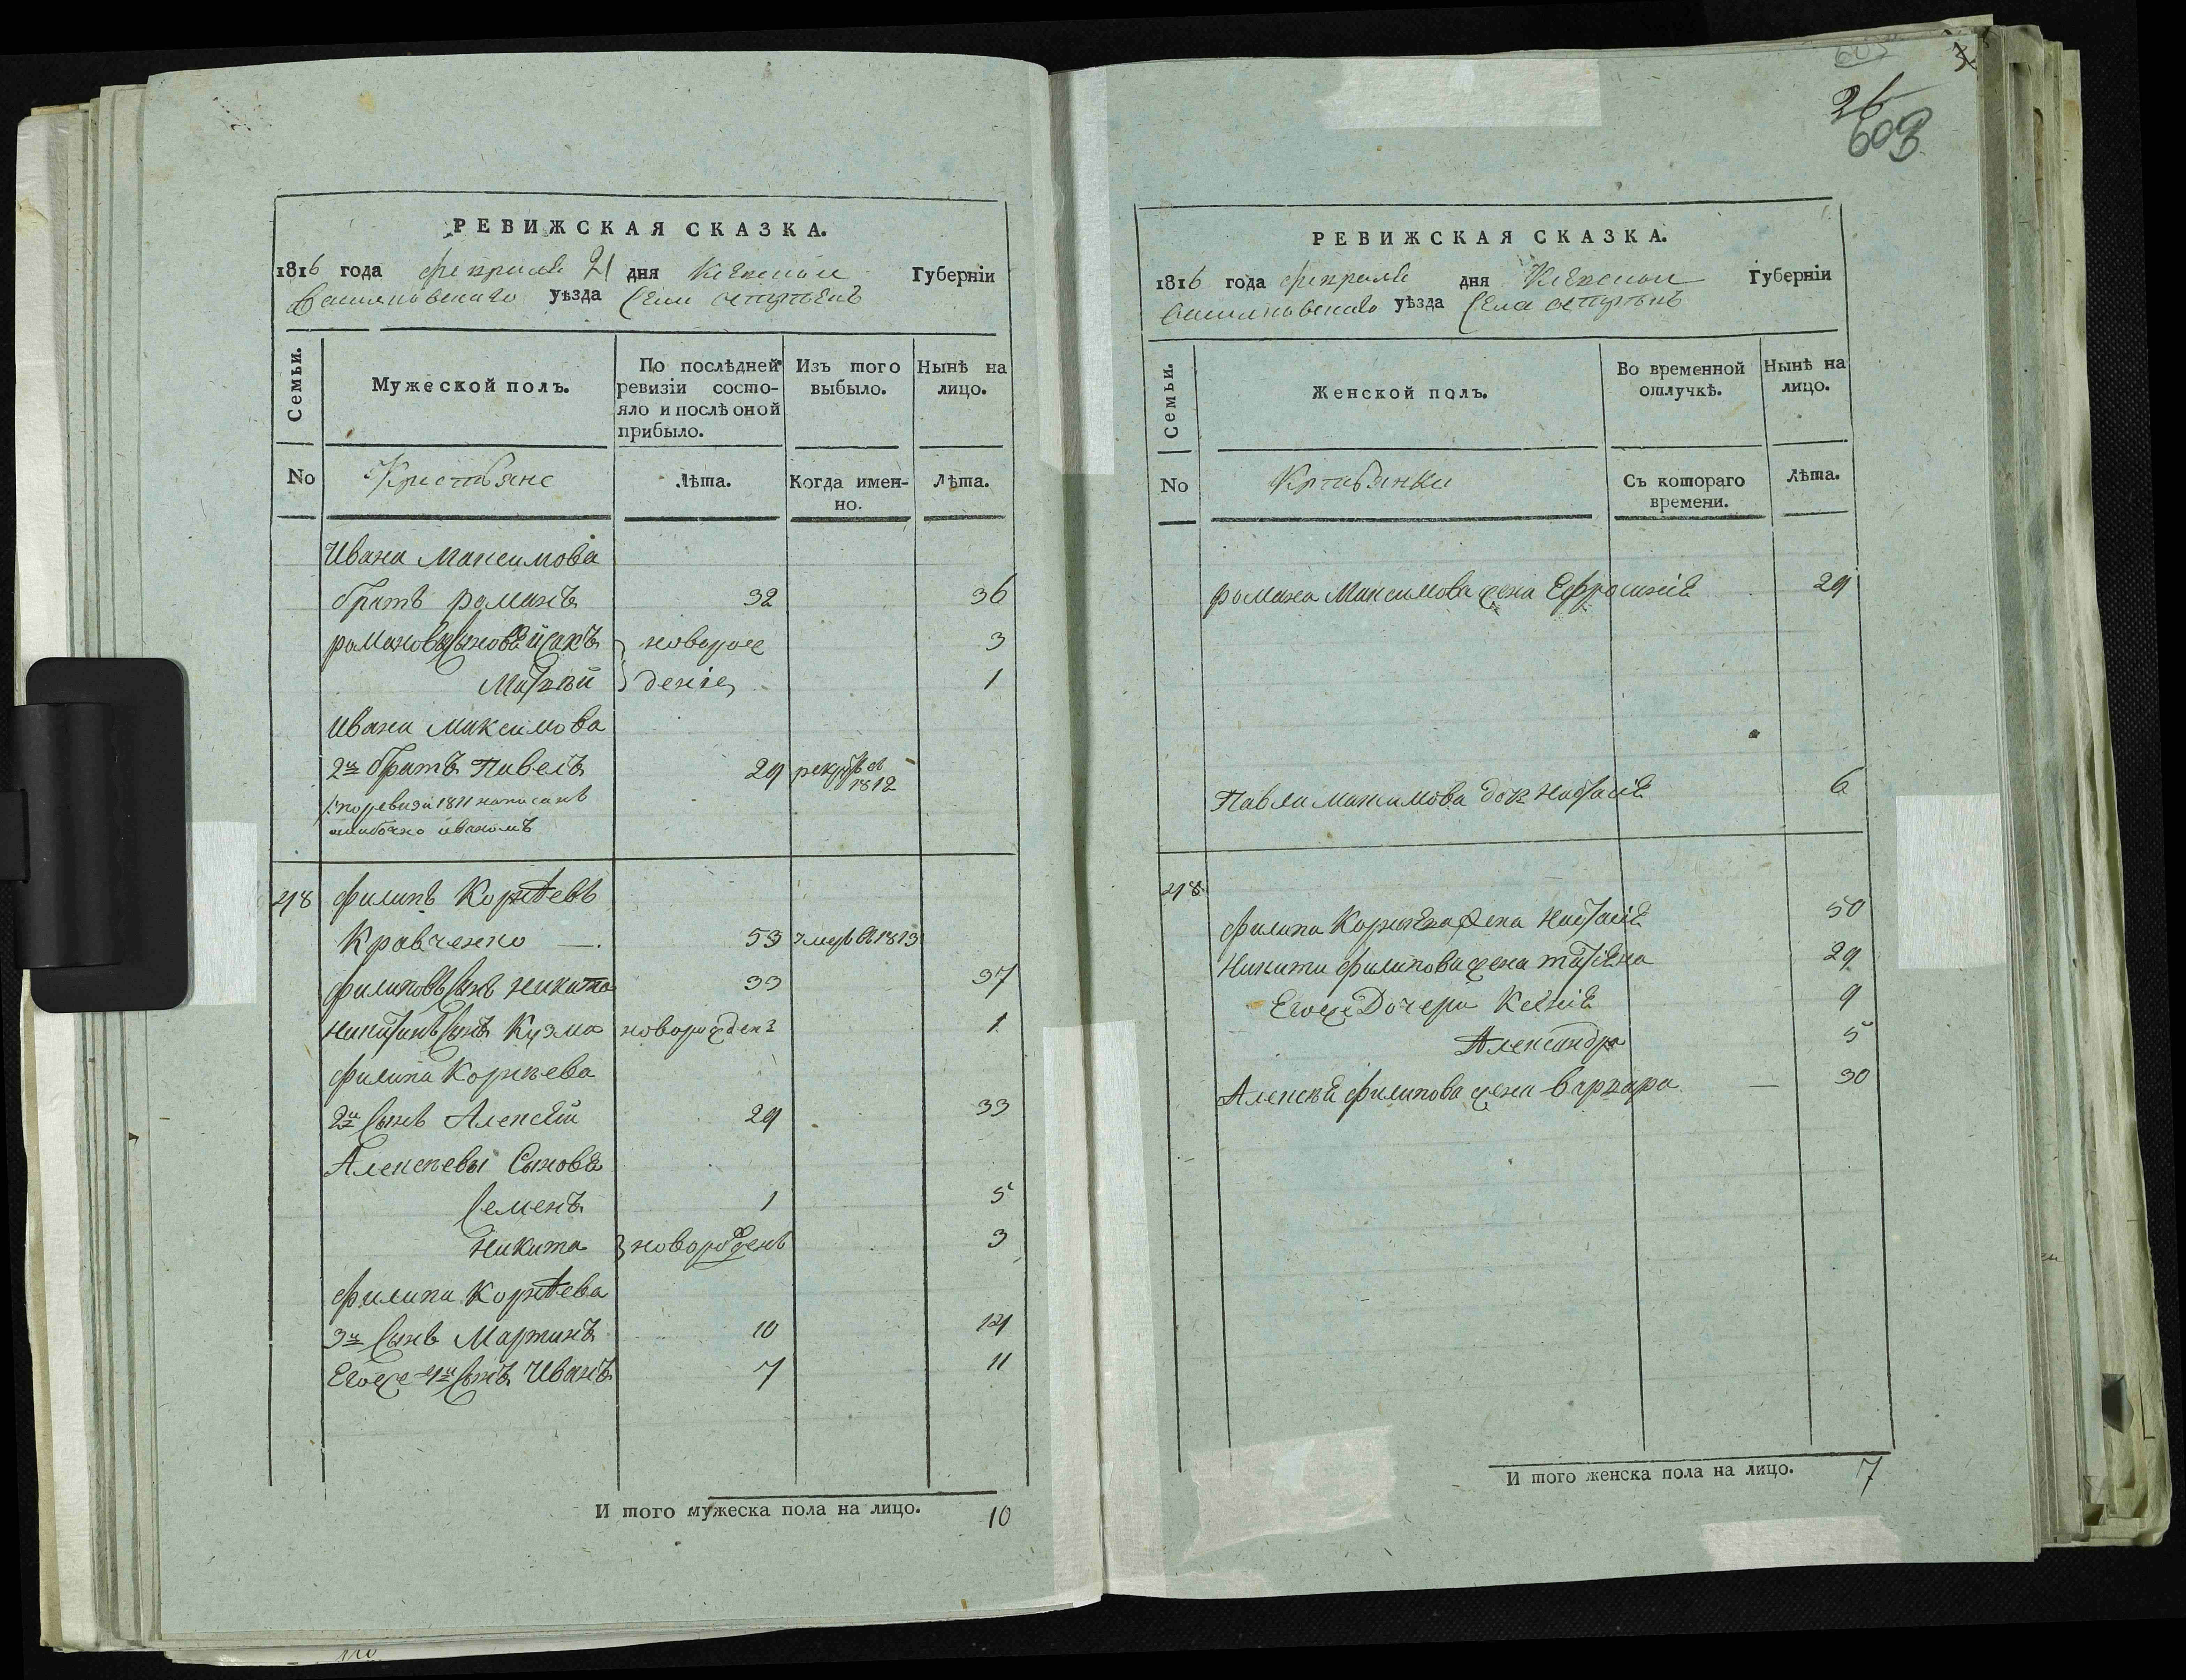 РЕВИЖСКАЯ СКАЗКА.
1816 года февраля 21 дня Киевской Губерніи
Васильковскаго уѣзда Села
Семьи.
Мужеской полъ.
По послѣдней ревизіи состо-
яло и послѣ оной
прибыло.
Изъ того
выбыло.
Нынѣ на
лицо.
No
Крестьяне
Лѣта.
Когда имен-
но.
Лѣта.
Ивана Максимова
братъ романъ 32 36
романовы сыновѣ исакъ новорож 3
Матвѣй дение 1
Ивана Максимова
2й братъ Павелъ 29 рекрутъ въ 1812
по ревизи 1811 написанъ
ошибочно иваномъ
218 филипъ Корнѣевъ
Кравченко —. 53 умеръ въ 1813
филиповъ сынъ никита 33 37
никитинъ сынъ Кузма новорожден 1
филипа Корнѣева
2й сынъ Алексѣй 29 33
Алексѣевы Сыновѣ
Семенъ 1 5
никита новорожденъ 3
филипа Корнѣева
3й сынъ Мартинъ 10 14
Егоже 4й сынъ Иванъ 7 11
И того мужеска пола на лицо. 10
26
603
РЕВИЖСКАЯ СКАЗКА.
1816 года февраля дня Киевской Губерніи
Васильковскаго уѣзда Села
Семьи.
Женской полъ.
Во временной
отлучкѣ.
Нынѣ на
лицо.
No
Съ котораго
времени.
Лѣта.
романа Максимова жена Ефросинiѣ 29
Павла максимова доч Настасiѣ 6
218
филипа Корнѣева жена Настасiѣ 50
Никиты филипова жена татiѣна 29
Егоже Дочери Ксѣнiѣ 9
Александра 5
Алексѣя филипова жена варвара — 30
И того женска пола на лицо. 7